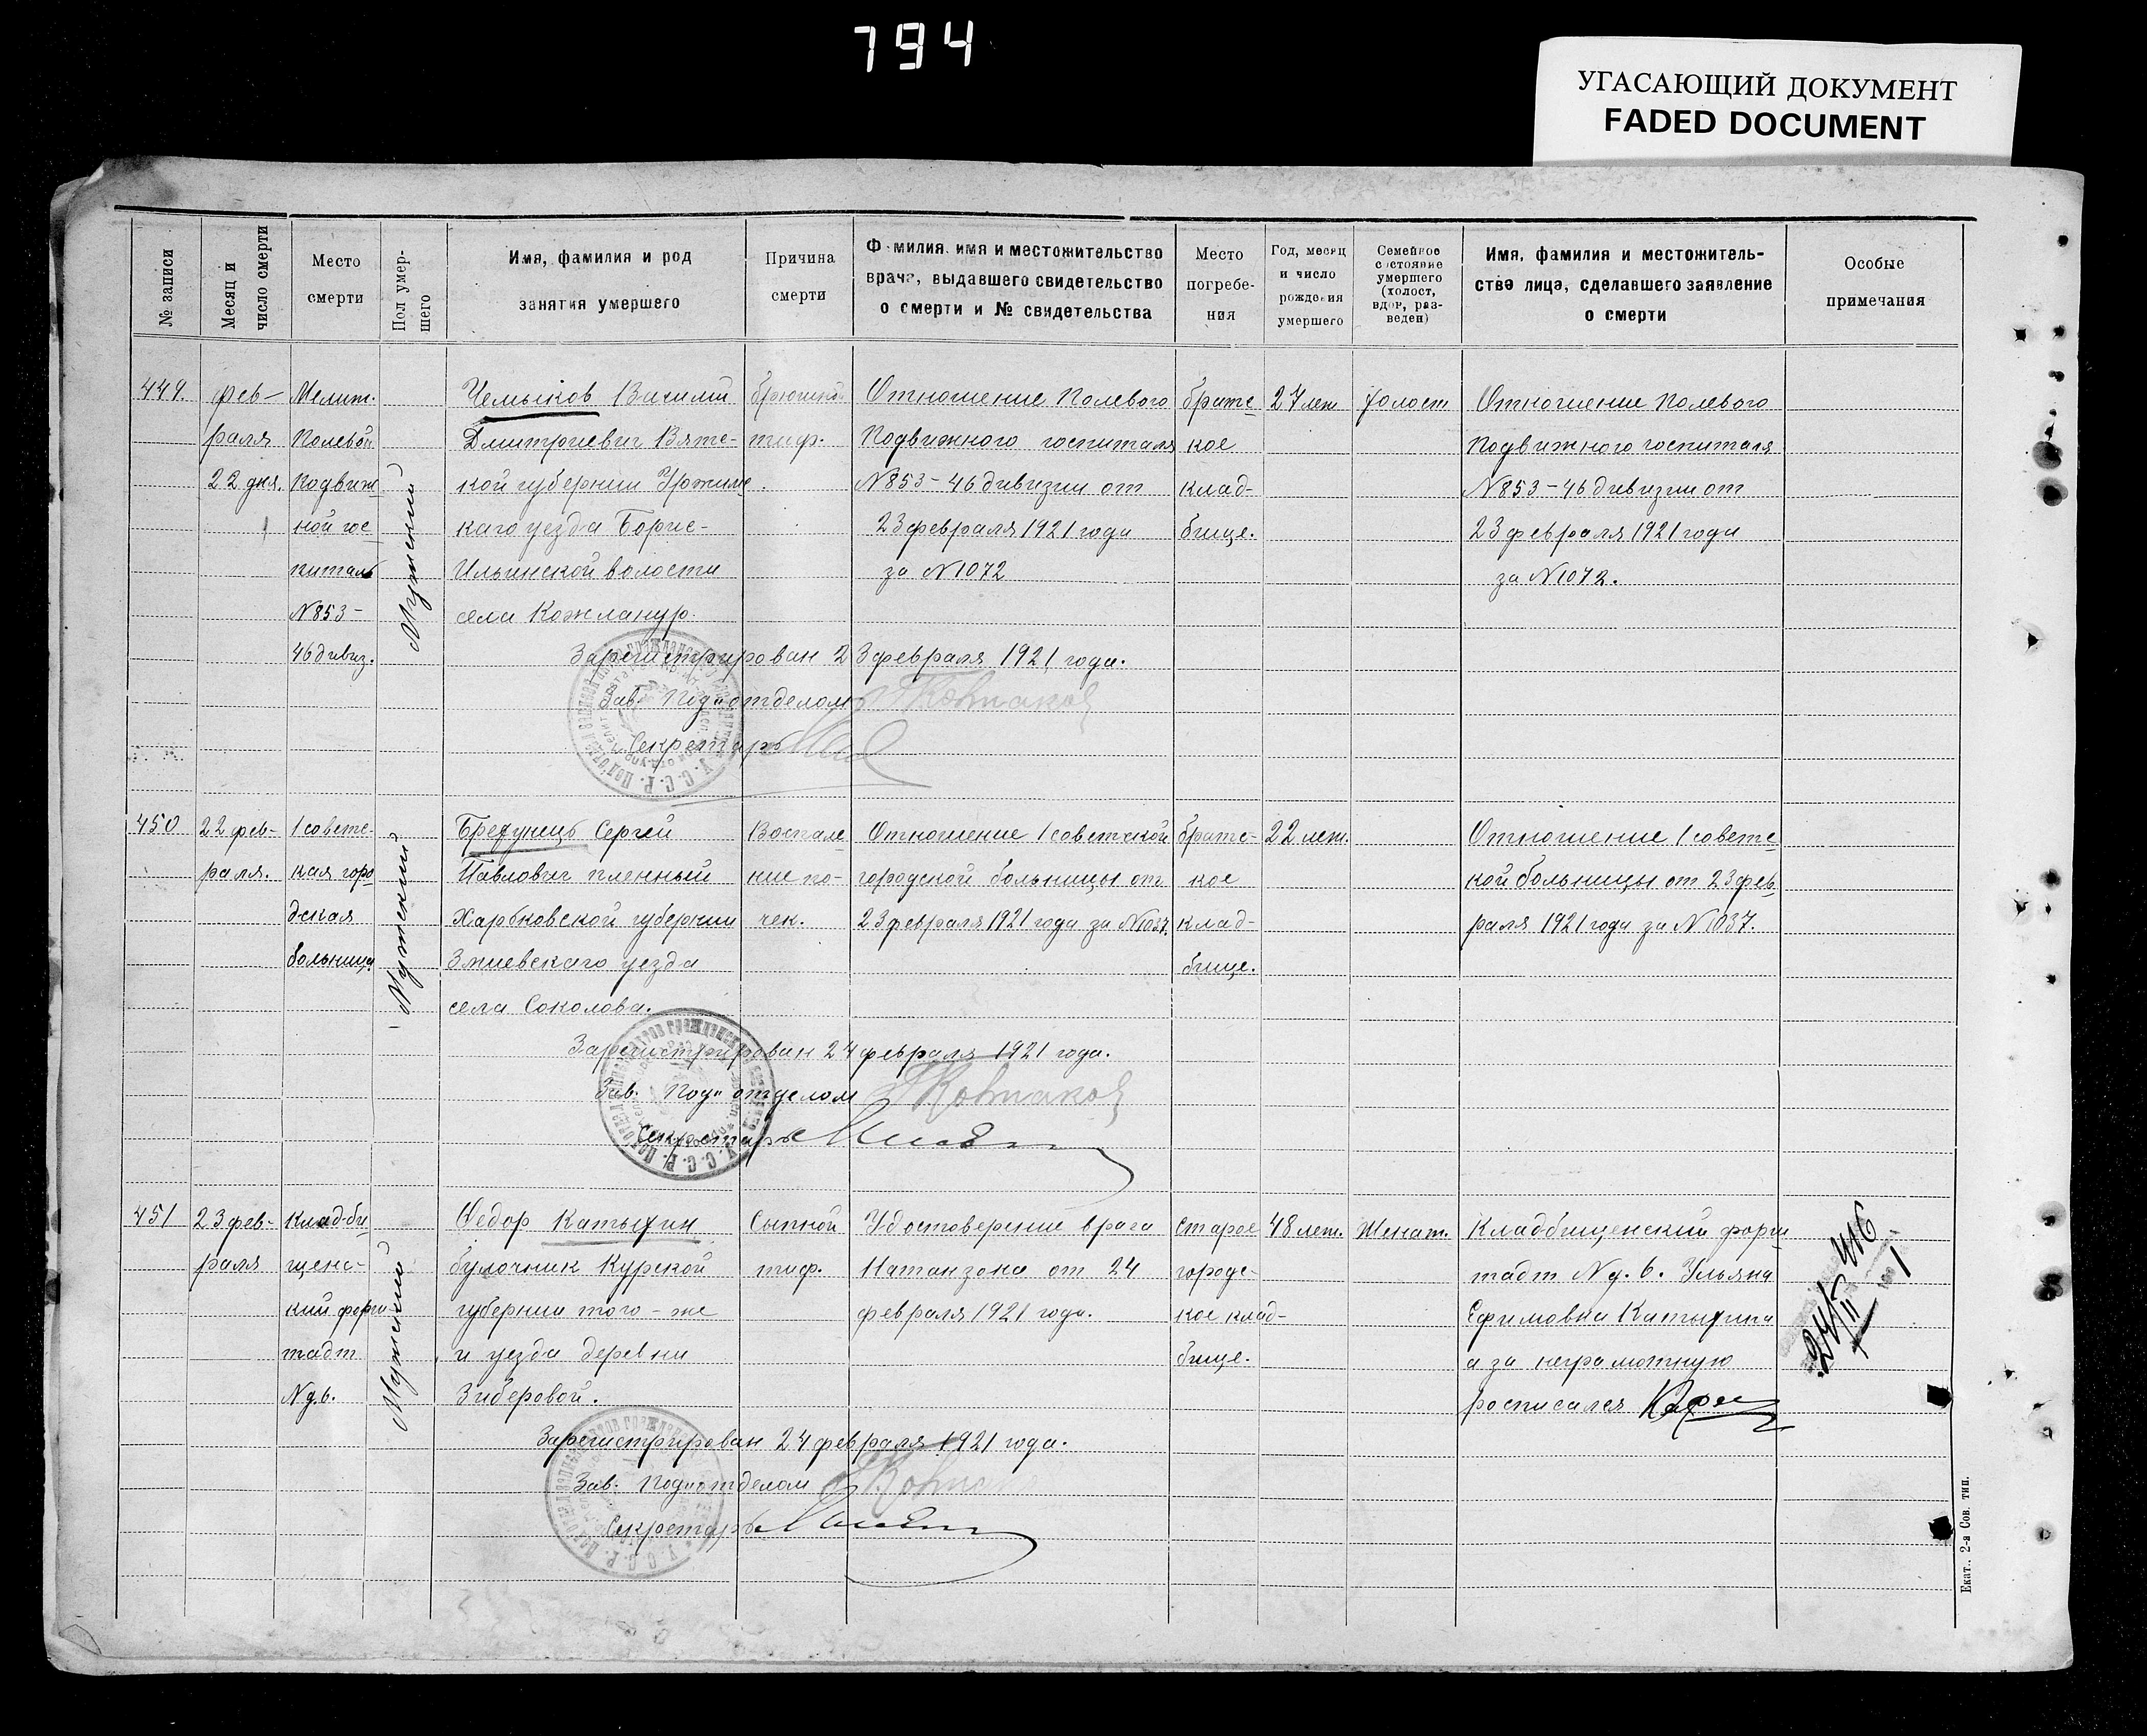 794
УГАСАЮЩИЙ ДОКУМЕНТ
FADED DOCUMENT
№ записи
Месяц и
число смерти
Место
смерти
Пол умер-
шего
Имя, фамилия и род
занятия умершего
Причина
смерти
Фамилия, имя и местожительство
врача, выдавшего свидетельство
о смерти и № свидетельства
Место
погребе-
ния
Год, месяц
и число
рождения
умершего
Семейное
состояние
умершего
(холост,
вдов, раз-
веден)
Имя, фамилия и местожитель-
ство лица, сделавшего заявление
о смерти
Особые
примечания
449.
фев-
раля
22 дня.
Мелит.
Полевой
Подвиж
ной гос
питаль
N853-
46 дивиз.
Мужеский
Чемыков Василий
Дмитриевич Вятс-
кой губернии Уржумс
каго уезда Борис-
Ильинской волости
села Кожланур.
брюшной
тиф.
Отношение Полевого
Подвижного госпиталя
N853-46 дивизии от
23 февраля 1921 года
за N1072
братс
кое
клад-
бище.
27 лет
холост
Отношение Полевого
Подвижного госпиталя
N853-46 дивизии от
23 февраля 1921 года
за N1072.
Зарегистрирован 23 февраля 1921 года.
Зав. Под"отделом
Секретарь
450
22 фев-
раля.
1 советс-
кая горо
дская
больница
Мужеский
Бредунець Сергей
Павлович пленный
Харьковской губернии
Змиевскаго уезда
села Соколова.
Воспале
ние по-
чек.
Отношение 1 советской
городской больницы от
23 февраля 1921 года за N1037.
братс-
кое
клад-
бище.
22 лет.
Отношение 1 советс
кой больницы от 23 фев
раля 1921 года за N1037.
Зарегистрирован 24 февраля 1921 года.
Зав. Под"отделом
Секретарь
451
23 фев-
раля
Клад-би
щенс-
кий форш
тадт
N д.6.
Мужеский
Федор Катыхин
булочник Курской
губернии того-же
и уезда деревни
Зиберовой.
Сыпной
тиф.
Удостоверение врача
Натанзона от 24
февраля 1921 года.
старое
городс-
кое клад-
бище.
48 лет.
Женат.
Кладбищенский форш
тадт N д. 6. Ульяна
Ефимовна Катыхина
а за неграмотную
росписался
24/II 1
Зарегистрирован 24 февраля 1921 года.
Зав. Под"отделом
Секретарь
Екат., 2-я Сов. тип.